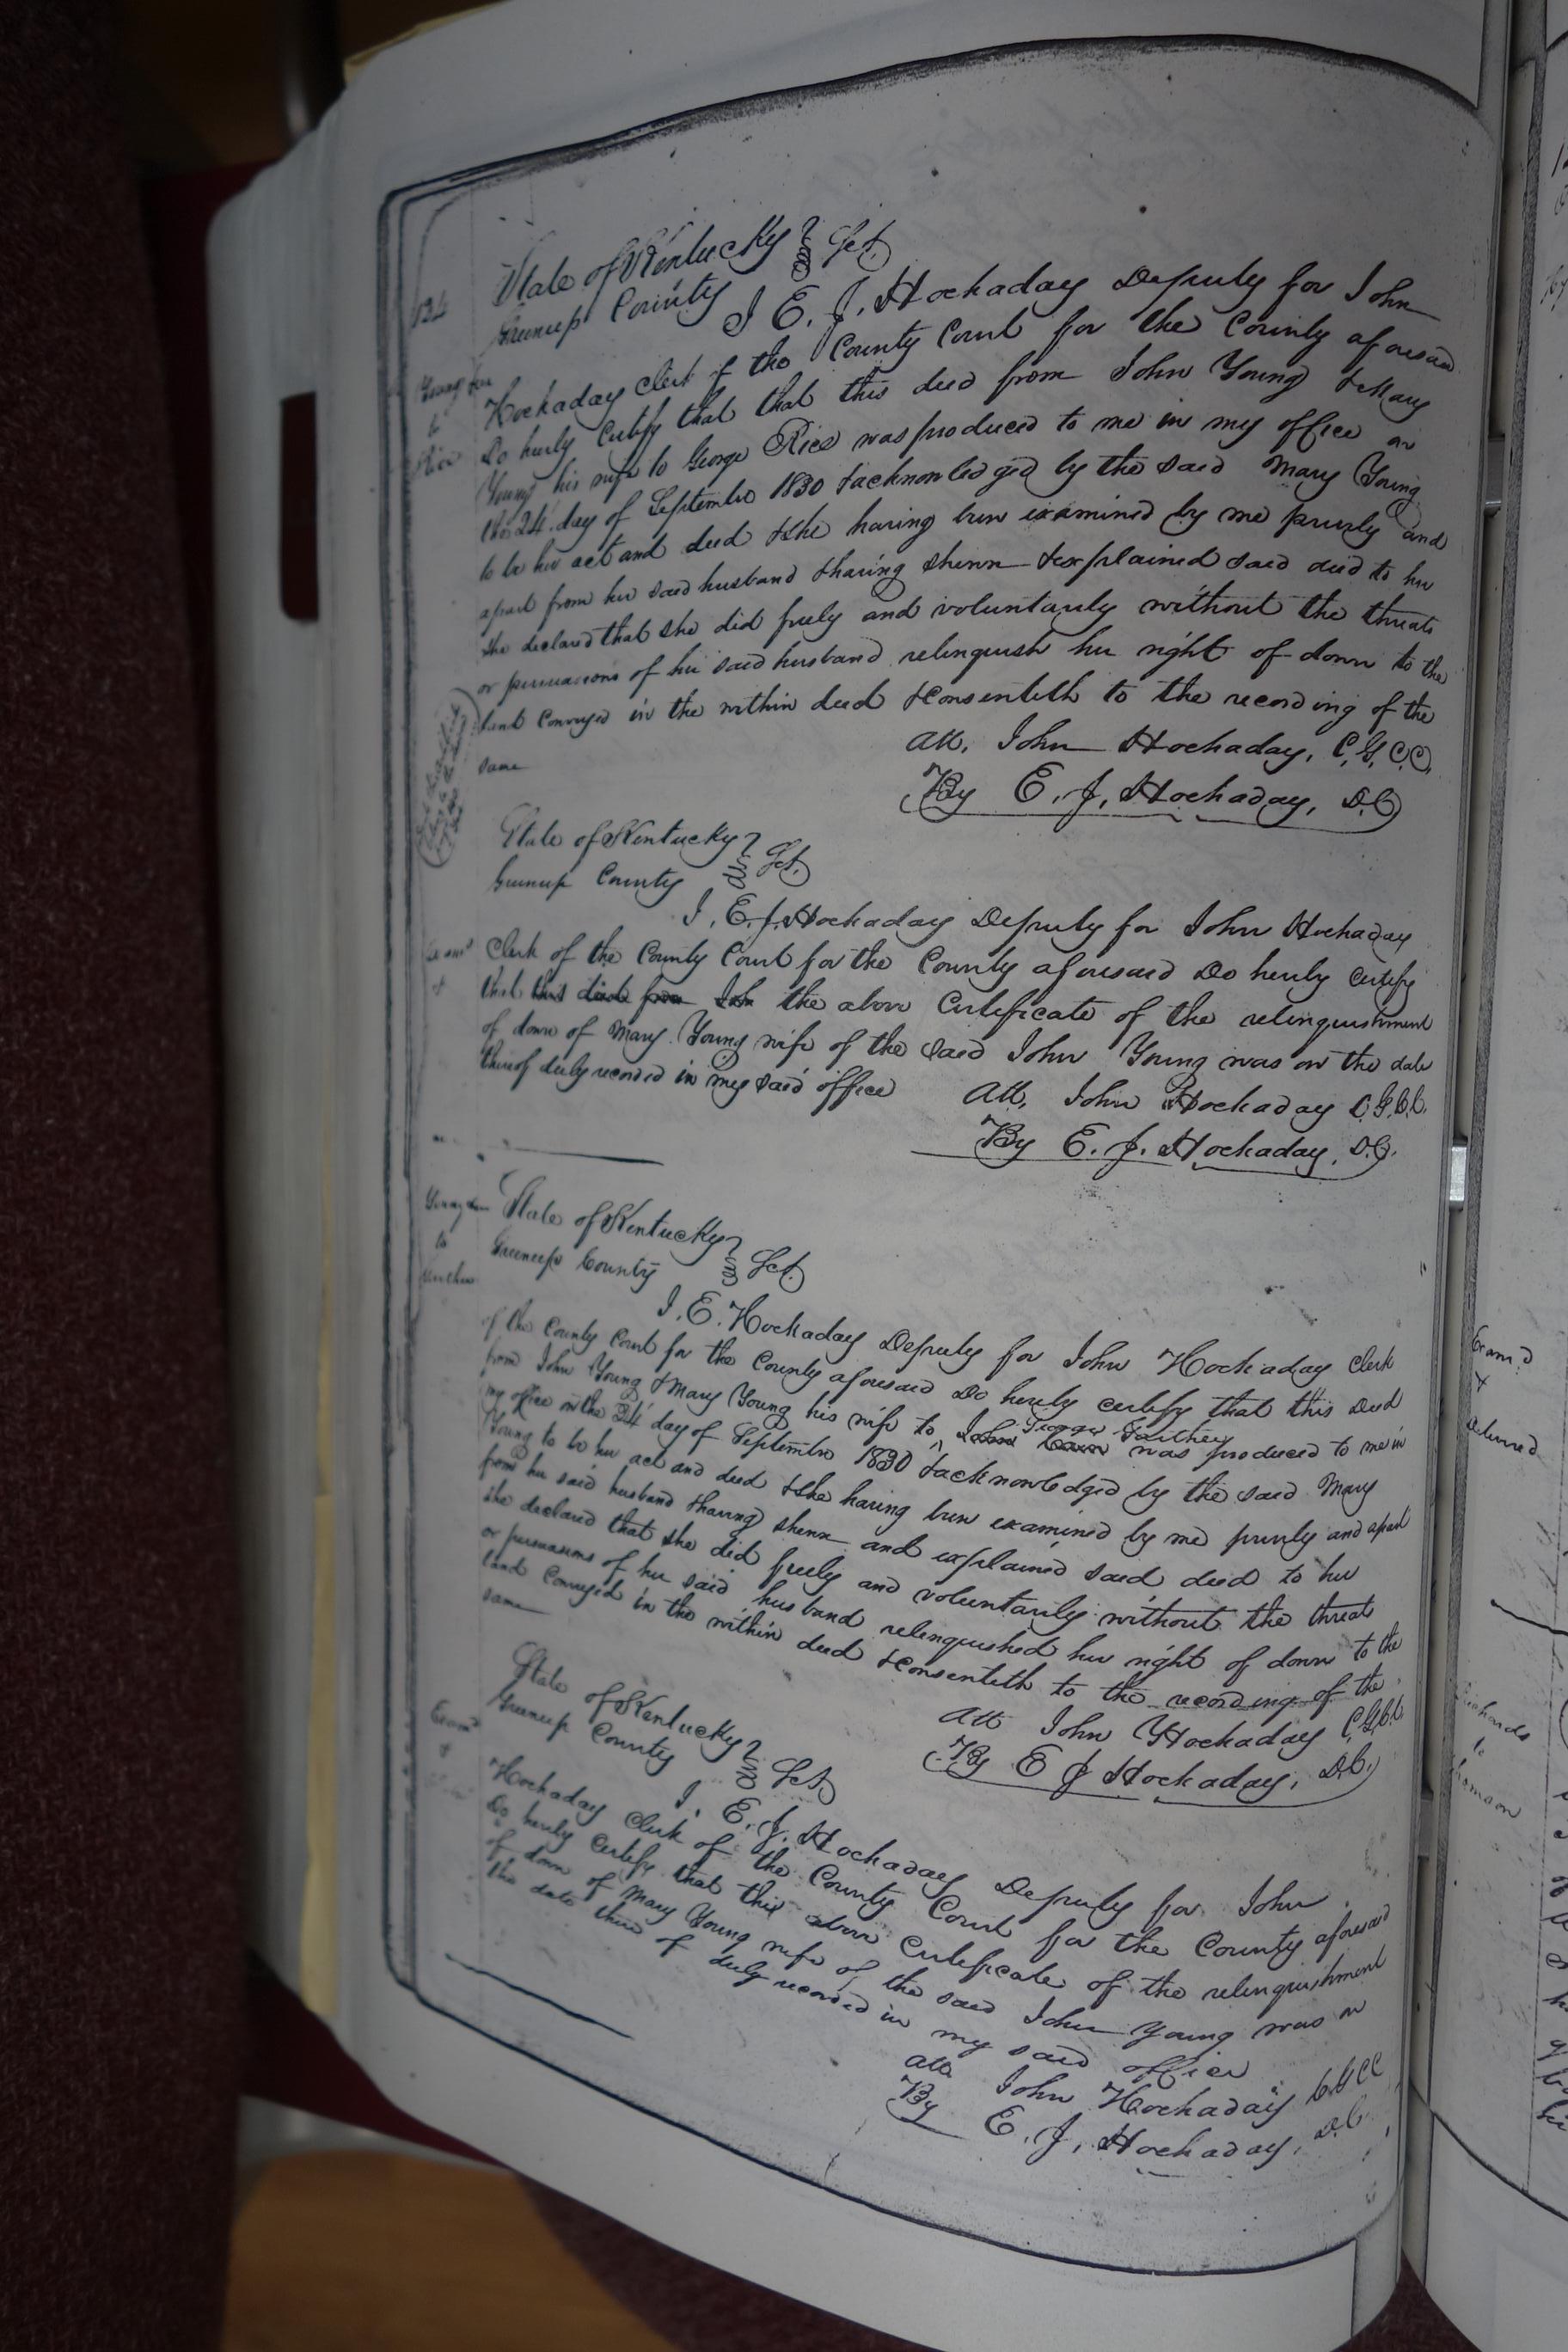 134
State of Kentucky } Sct.
Greenup County
I E. J. Hockaday Deputy for John
Hockaday Clerk of the County Court for the County aforesaid
Do herely Certify that that this deed from John Young & Mary
Young his wife to George Rice was produced to me in my office on
the 24 day of September 1830 & acknowledged by the said Mary Young
to be her act and deed & she having been examined by me privily and
apart from her said husband & having shewn & explained said deed to her
she declared that she did freely and voluntarily without the threats
or persuasions of her said husband relinquish her right of dower to the
land conveyed in the within deed & consenteth to the recording of the
same
Att. John Hockaday, C.G.C.C.
By E. J. Hockaday, D.C.
Young &c
to
Rice
State of Kentucky } Sct.
Greenup County
I, E. J. Hockaday Deputy for John Hockaday
Clerk of the County Court for the County aforesaid Do herely certify
that this deed from John the above Certificate of the relinquishment
of dower of Mary Young wife of the said John Young was on the date
thereof duly recorded in my said office
Att, John Hockaday C.G.C.C.
By E. J. Hockaday, D.C.
Exam'd
&
Young &c
to
State of Kentucky } Sct.
Greenup County
I. E. Hockaday Deputy for John Hockaday Clerk
of the County Court for the County aforesaid Do herely certify that this Deed
from John Young & Mary Young his wife to John George was produced to me in
my office on the 24 day of September 1830 & acknowledged by the said Mary
Young to be her act and deed & she having been examined by me privily and apart
from her said husband & having shewn and explained said deed to her
she declared that she did freely and voluntarily without the threats
or persuasions of her said husband relinquished her right of dower to the
land conveyed in the within deed & consenteth to the recording of the
same
Att John Hockaday C.G.C.C.
By E J Hockaday, D.C.
State of Kentucky } Sct.
Greenup County
I. E. J. Hockaday Deputy for John
Hockaday Clerk of the County Court for the County aforesaid
Do herely Certify that this above Certificate of the relinquishment
of dower of Mary Young wife of the said John Young was on
the date there of duly recorded in my said office
Att John Hockaday C.G.C.C
By E. J. Hockaday, D.C.
Exam'd
&
Exam.d
&
delivered
Richards
to